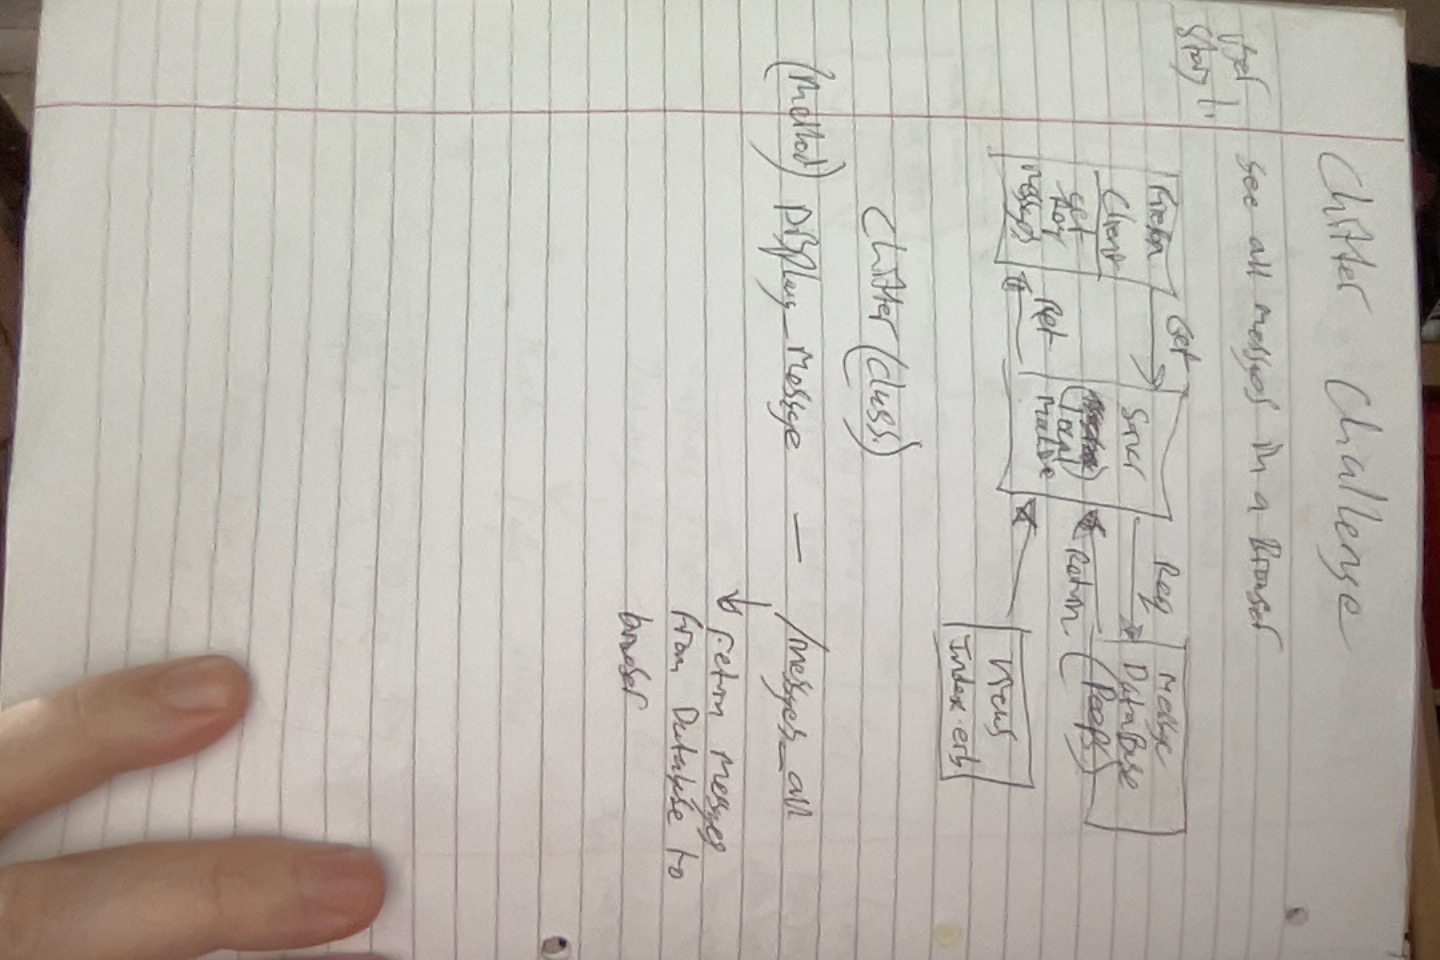 Chitter Challenge
User
Story 1:
see all messages in a Browser
Get
Req
Client
get
messages
Server
Local
Machine
Ret
Return
Message
DataBase
(Peeps)
Views
Index.erb
Chitter (class)
(Method) Display_message — /messages_all
↳ return messages
from Database to
browser